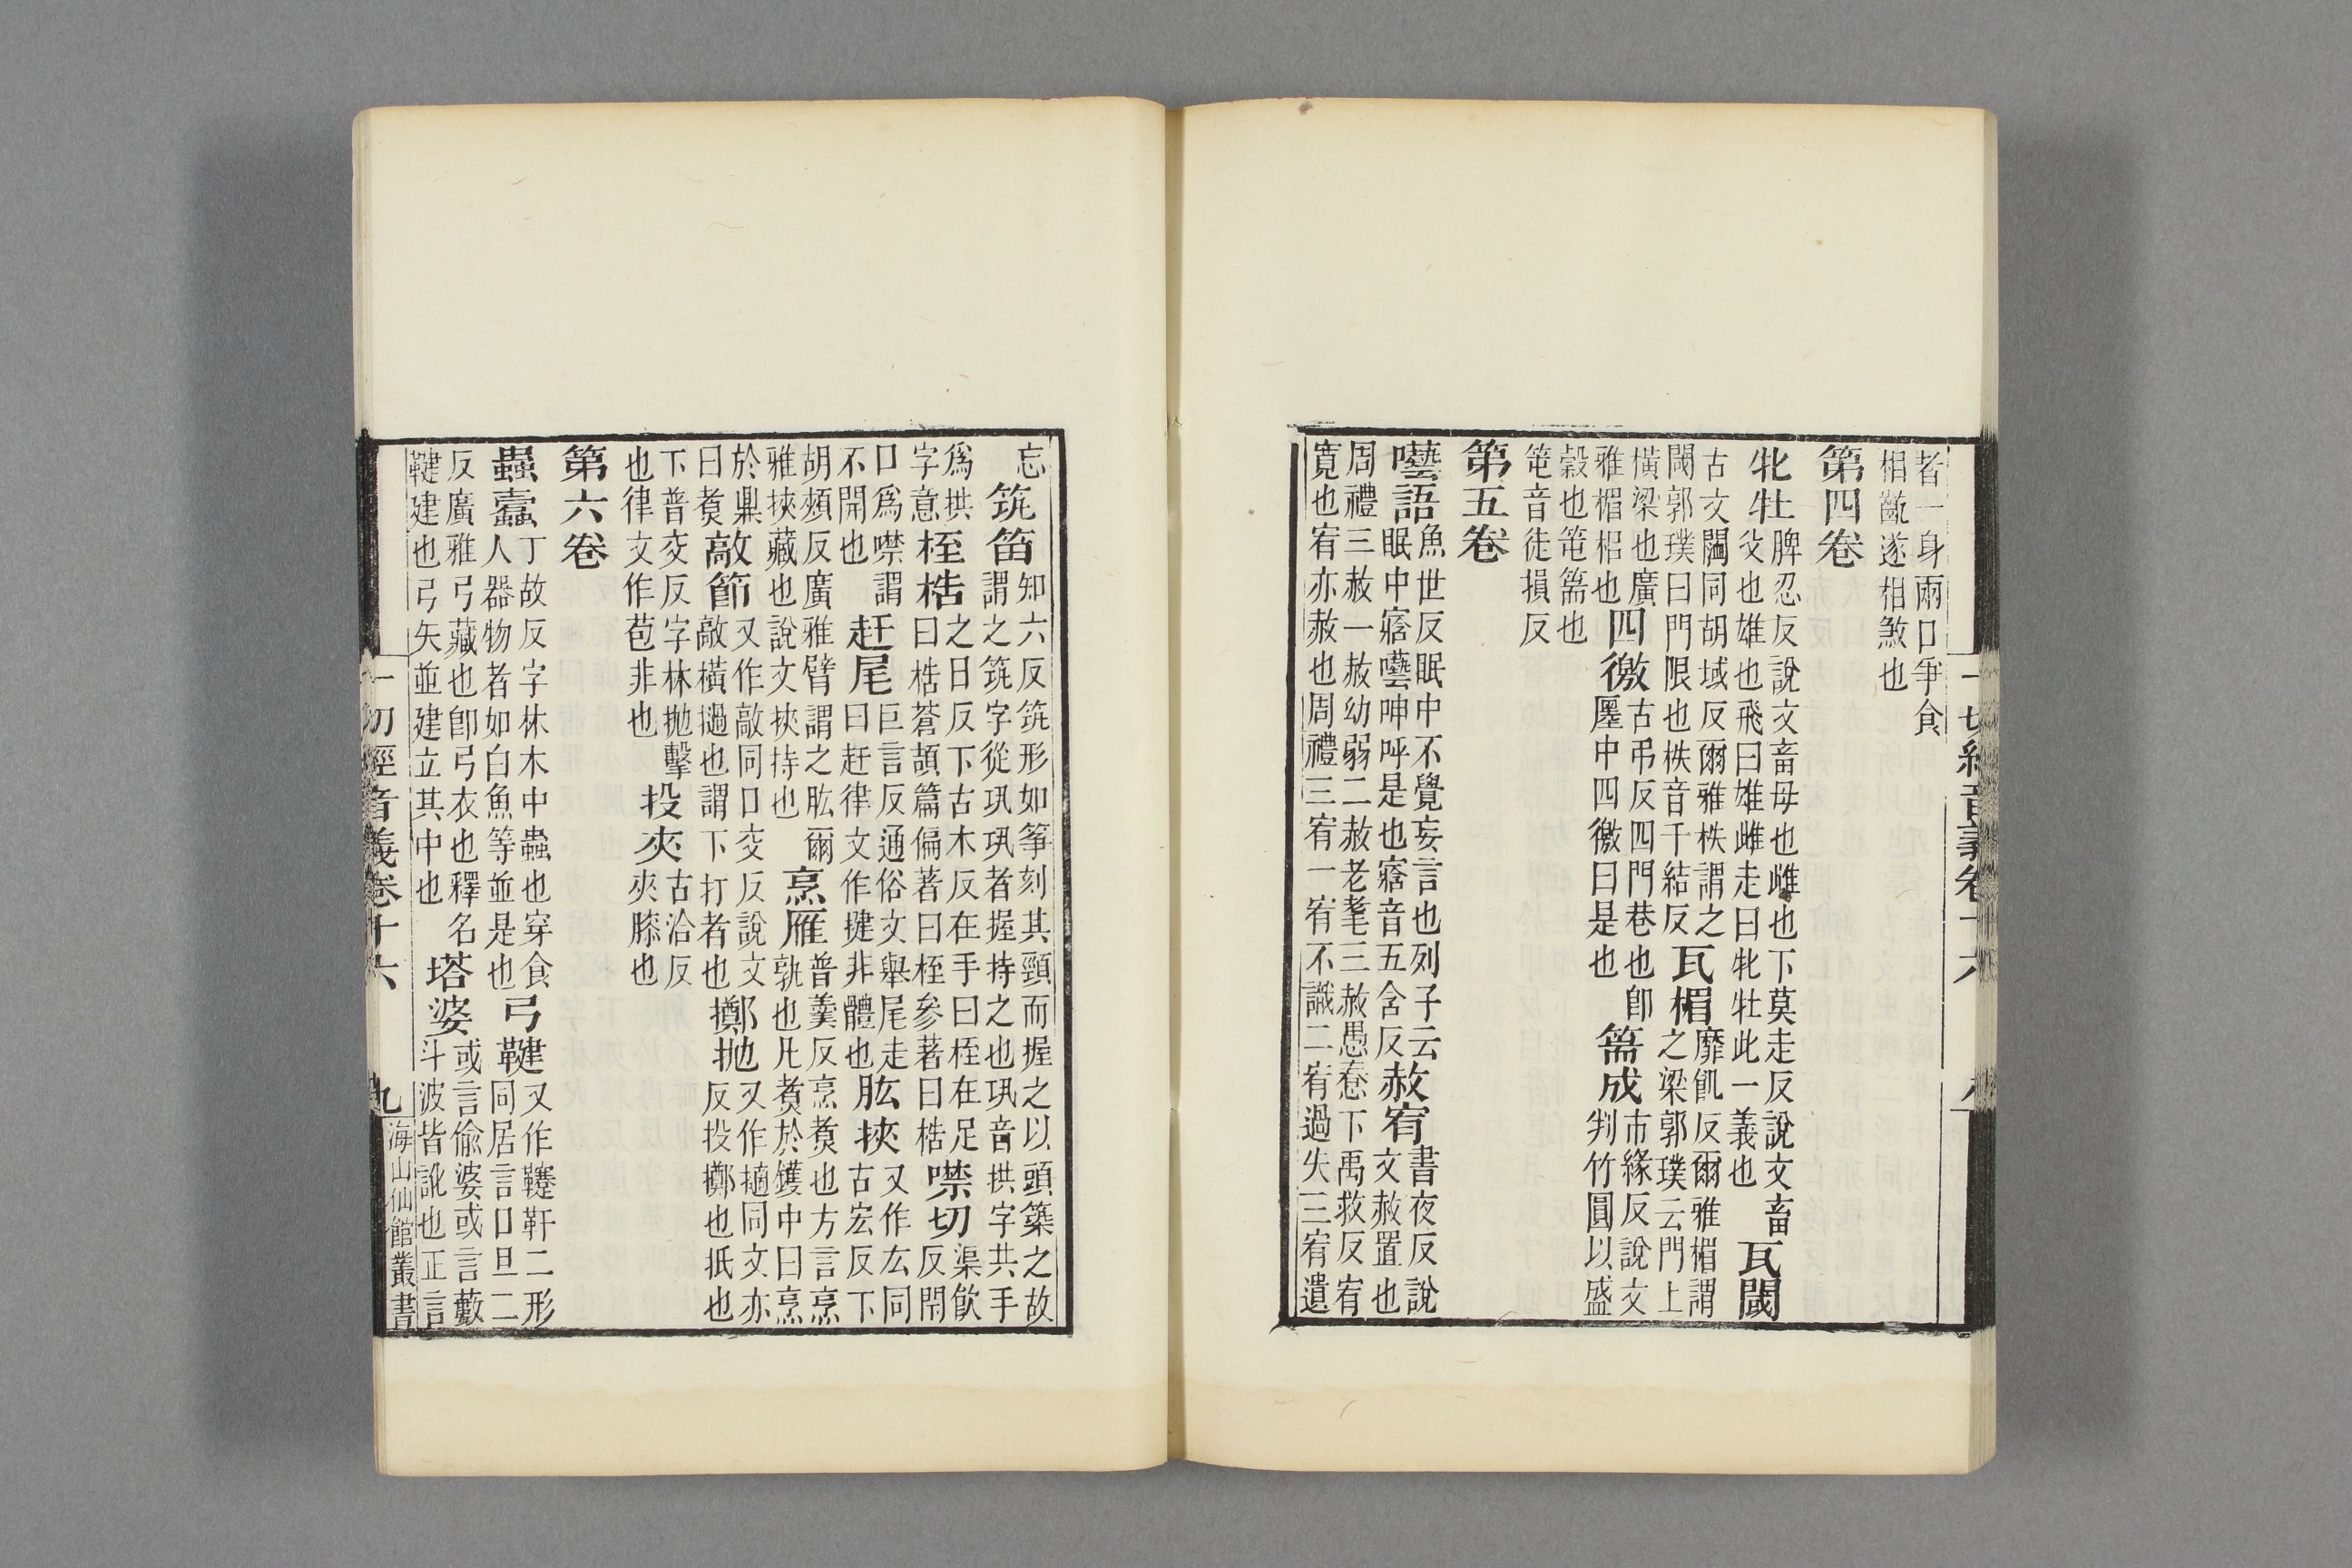 者一身兩口爭食
相齩遂相煞也
第四卷
牝牡脾忍反說文畜母也雌也下莫走反說文畜
父也雄也飛曰雄雌走曰牝牡此一義也瓦閾
古文閾同胡域反爾雅柣謂之
閾郭璞曰門限也柣音千結反瓦楣靡飢反爾雅楣謂
之梁郭璞云門上
橫梁也廣
雅楣梠也四徼古弔反四門巷也卽
壥中四徼曰是也篅成市緣反說文
判竹圓以盛
穀也篅也
篅音徒損反
第五卷
囈語魚世反眠中不覺妄言也列子云
眠中㝱囈呻呼是也㝱音五舍反赦宥書夜反說
文赦置也
周禮三赦一赦幼弱二赦老耄三赦愚惷下禹救反宥
寬也宥亦赦也周禮三宥一宥不識二宥過失三宥遺
一切經音義卷十六
忘筑笛知六反筑形如箏刻其頸而握之以頭築之故
謂之筑字從巩巩者握持之也巩音拱字共手
爲拱
字意桎梏之日反下古木反在手曰桎在足
曰梏蒼頡篇偏著曰桎參著曰梏噤切渠飮
反閉
口爲噤謂
不開也赶尾巨言反通俗文舉尾走
曰赶律文作揵非體也肱挾又作厷同
古宏反下
胡頰反廣雅臂謂之肱爾
雅挾藏也說文挾持也烹雁普羹反烹煑也方言烹
孰也凡煑於鑊中曰烹
於鼎
曰煑敲節又作敲同口交反說文
敲橫撾也謂下打者也擲抛又作擿同文亦
反投擲也抵也
下普交反字林拋擊
也律文作苞非也投夾古洽反
夾膝也
第六卷
蟲蠹丁故反字林木中蟲也穿食
人器物者如白魚等並是也弓鞬又作韆靬二形
同居言口旦二
反廣雅弓藏也卽弓衣也釋名
鞬建也弓矢並建立其中也塔婆或言偷婆或言藪
斗波皆訛也正言
一切經音義卷十六
九
海山仙館叢書